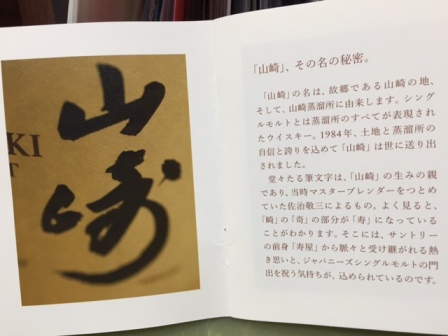 山崎
KI
T
「山崎」、その名の秘密。
「山崎」の名は、故郷である山崎の地、
そして、山崎蒸溜所に由来します。シング
ルモルトとは蒸溜所のすべてが表現され
たウイスキー。1984年、土地と蒸溜所の
自信と誇りを込めて「山崎」は世に送り出
されました。
堂々たる筆文字は、「山崎」の生みの親
であり、当時マスターブレンダーをつとめ
ていた佐治敬三によるもの。よく見ると、
「崎」の「奇」の部分が「寿」になっている
ことがわかります。そこには、サントリー
の前身「寿屋」から脈々と受け継がれる熱
き思いと、ジャパニーズシングルモルトの門
出を祝う気持ちが、込められているのです。